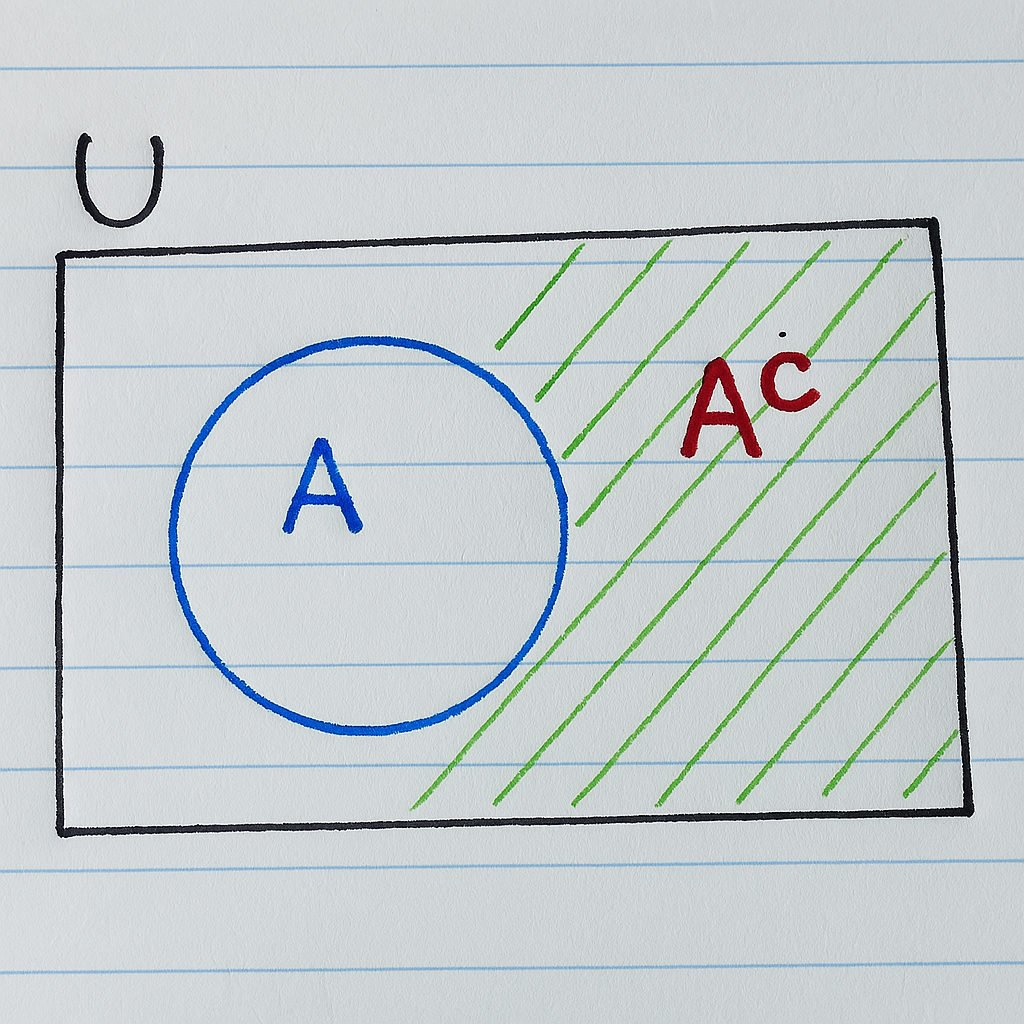 U
A
Aᶜ